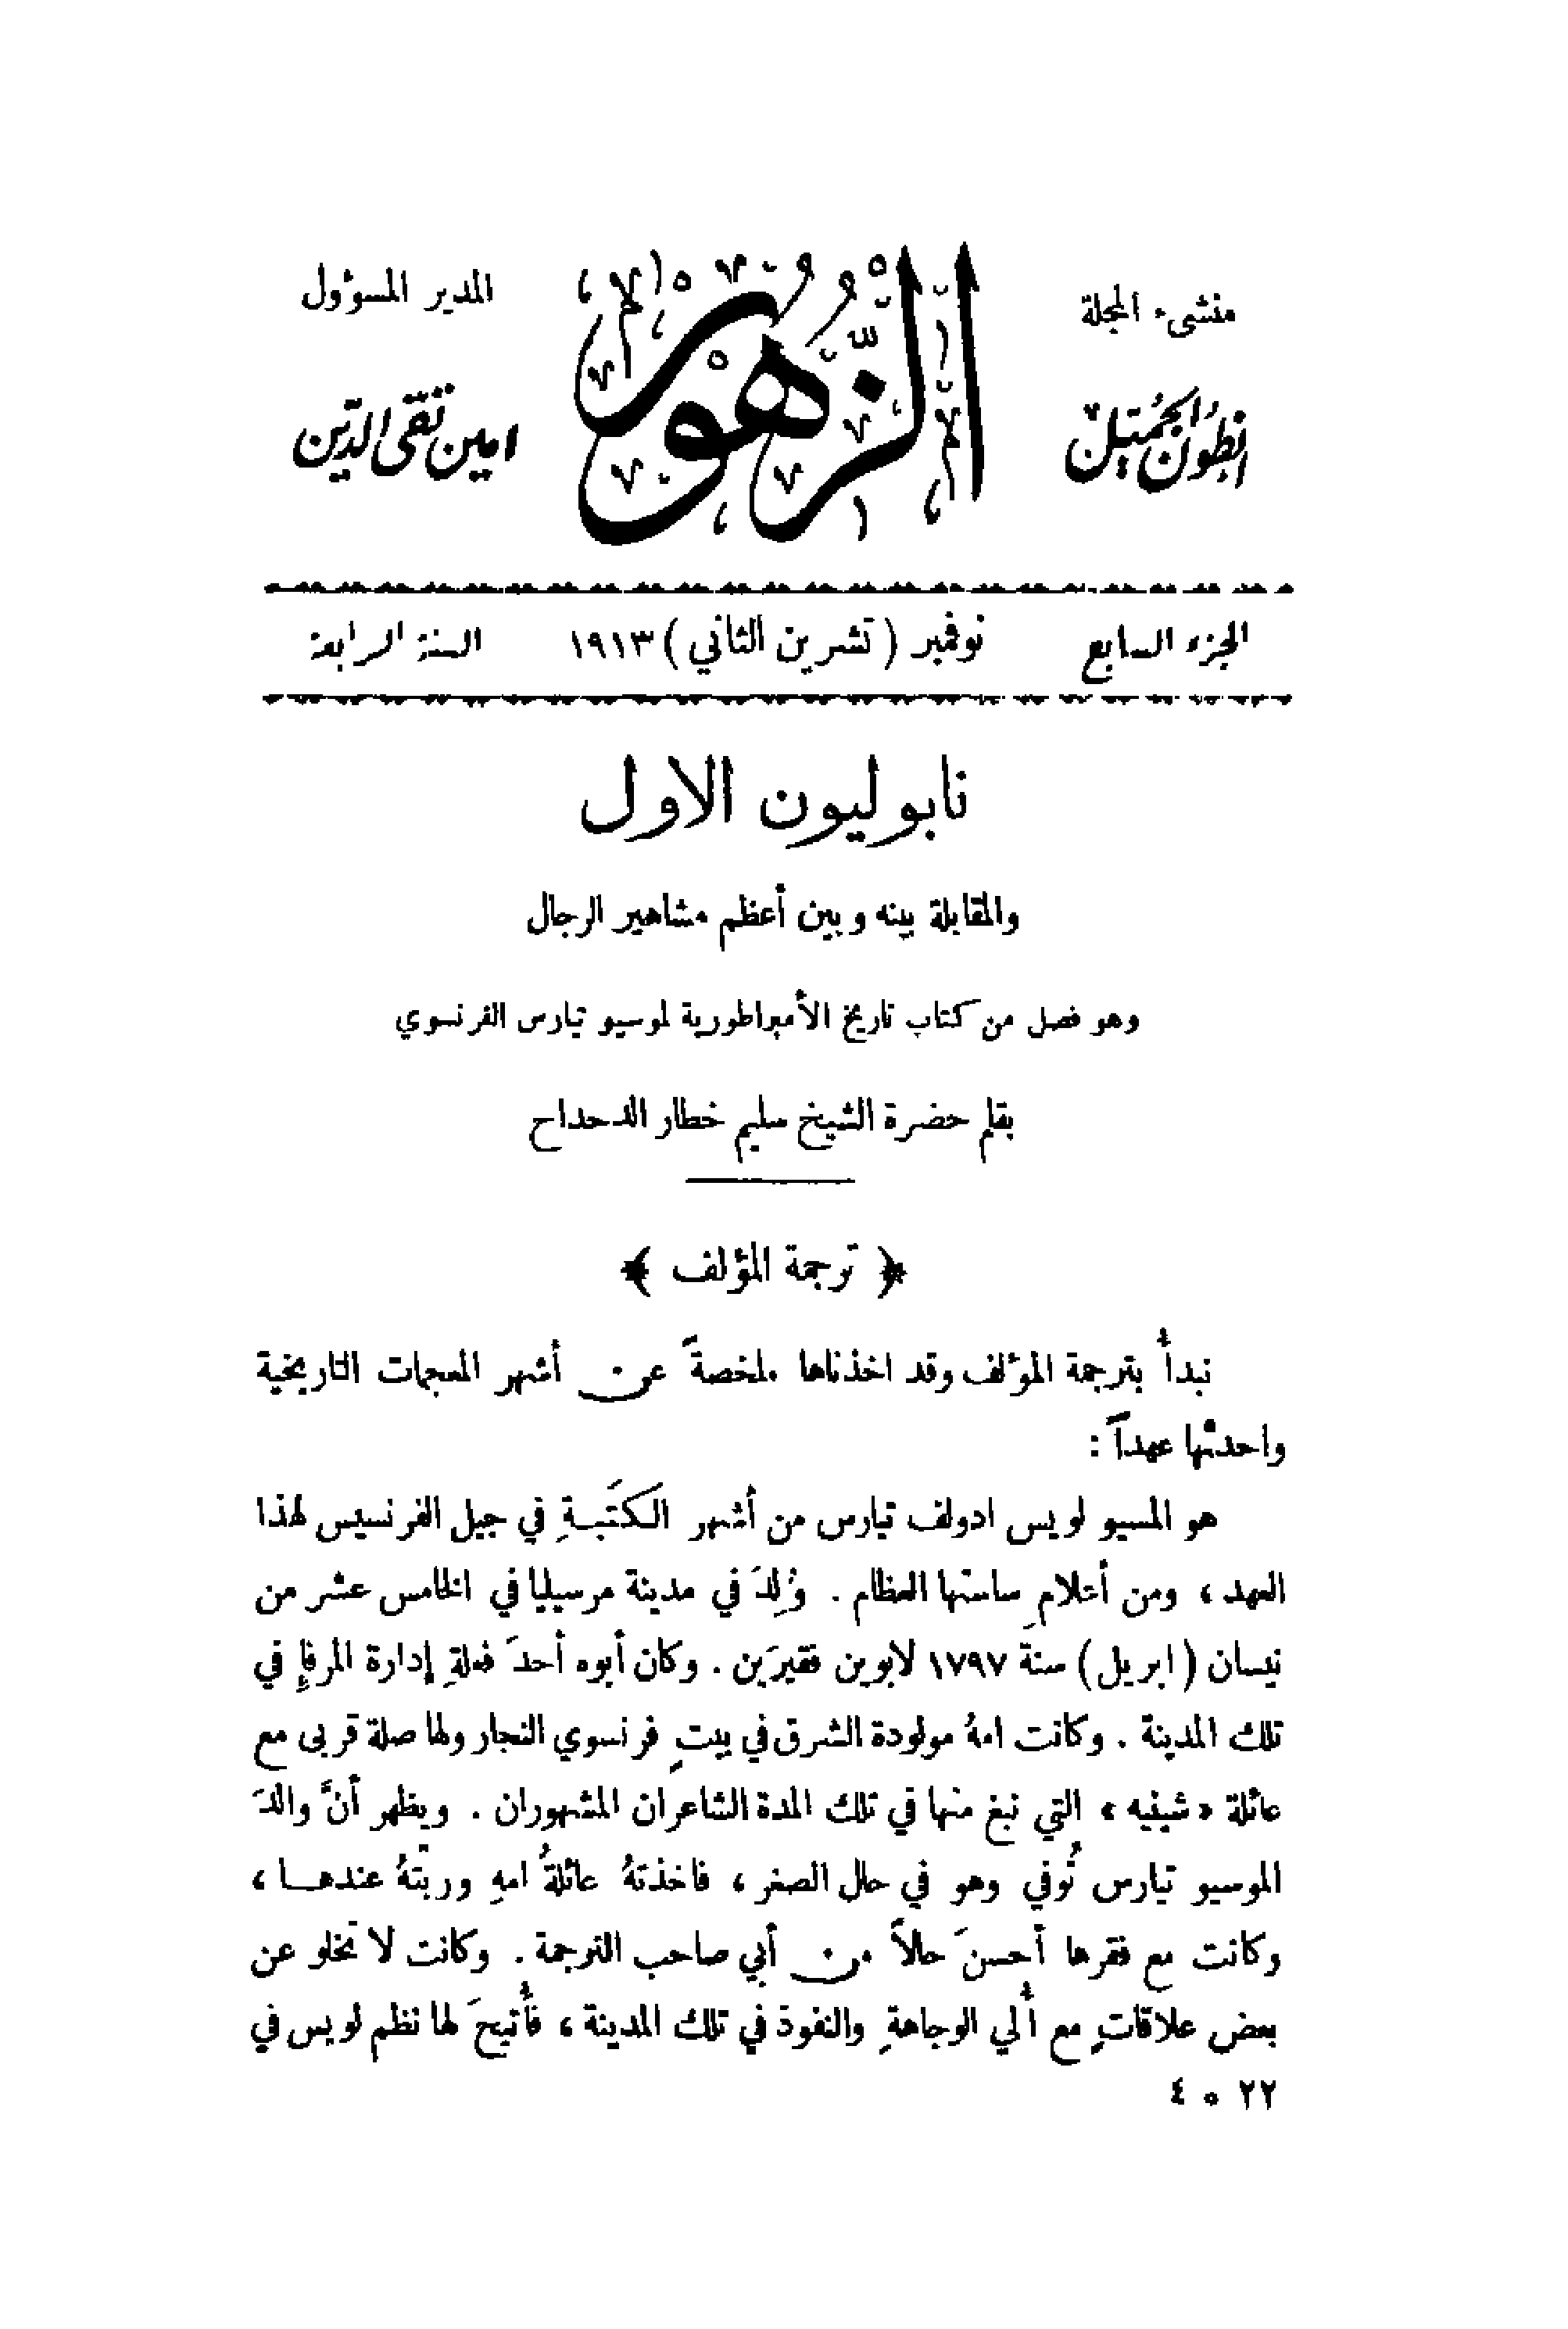 منشىء المجلة
انطون الجميّل
الزُّهُور
المدير المسوٴول
امين تقي الدين
الجزء السابع
نوفمبر (تشرين الثاني) ١٩١٣
السنة الرابعة
نابوليون الاول
والمقابلة بينه وبين أعظم مشاهير الرجال
وهو فصل من كتاب تاريخ الأمبراطورية لموسيو تيارس الفرنسوي
بقلم حضرة الشيخ سليم خطار الدحداح
﴿ ترجمة المؤلف ﴾
نبدأُ بترجمة المؤلف وقد اخذناها ملخصةً عن أشهر المعجمات التاريخية
واحدثها عهداً :
هو المسيو لويس ادولف تيارس من أشهر الكتَبةِ في جيل الفرنسيس لهذا
العهد ، ومن أعلامِ ساستها العظام . وُلِدَ في مدينة مرسيليا في الخامس عشر من
نيسان (ابريل) سنة ١٧٩٧ لابوين فقيرَين . وكان أبوه أحدَ فعلةِ إدارة المرفإِ في
تلك المدينة . وكانت امهُ مولودة الشرق في بيتٍ فرنسوي النجار ولها صلة قربى مع
عائلة «شينيه» التي نبغ منها في تلك المدة الشاعران المشهوران . ويظهر أنَّ والدَ
الموسيو تيارس تُوفي وهو في حال الصغر ، فاخذتهُ عائلةُ امهِ وربّتهُ عندهـا ،
وكانت مع فقرها أحسنَ حالاً من أبي صاحب الترجمة . وكانت لا تخلو عن
بعض علاقاتٍ مع أُلي الوجاهةِ والنفوذ في تلك المدينة ، فأُتيحَ لها نظم لويس في
٢٢ ٥ ٤